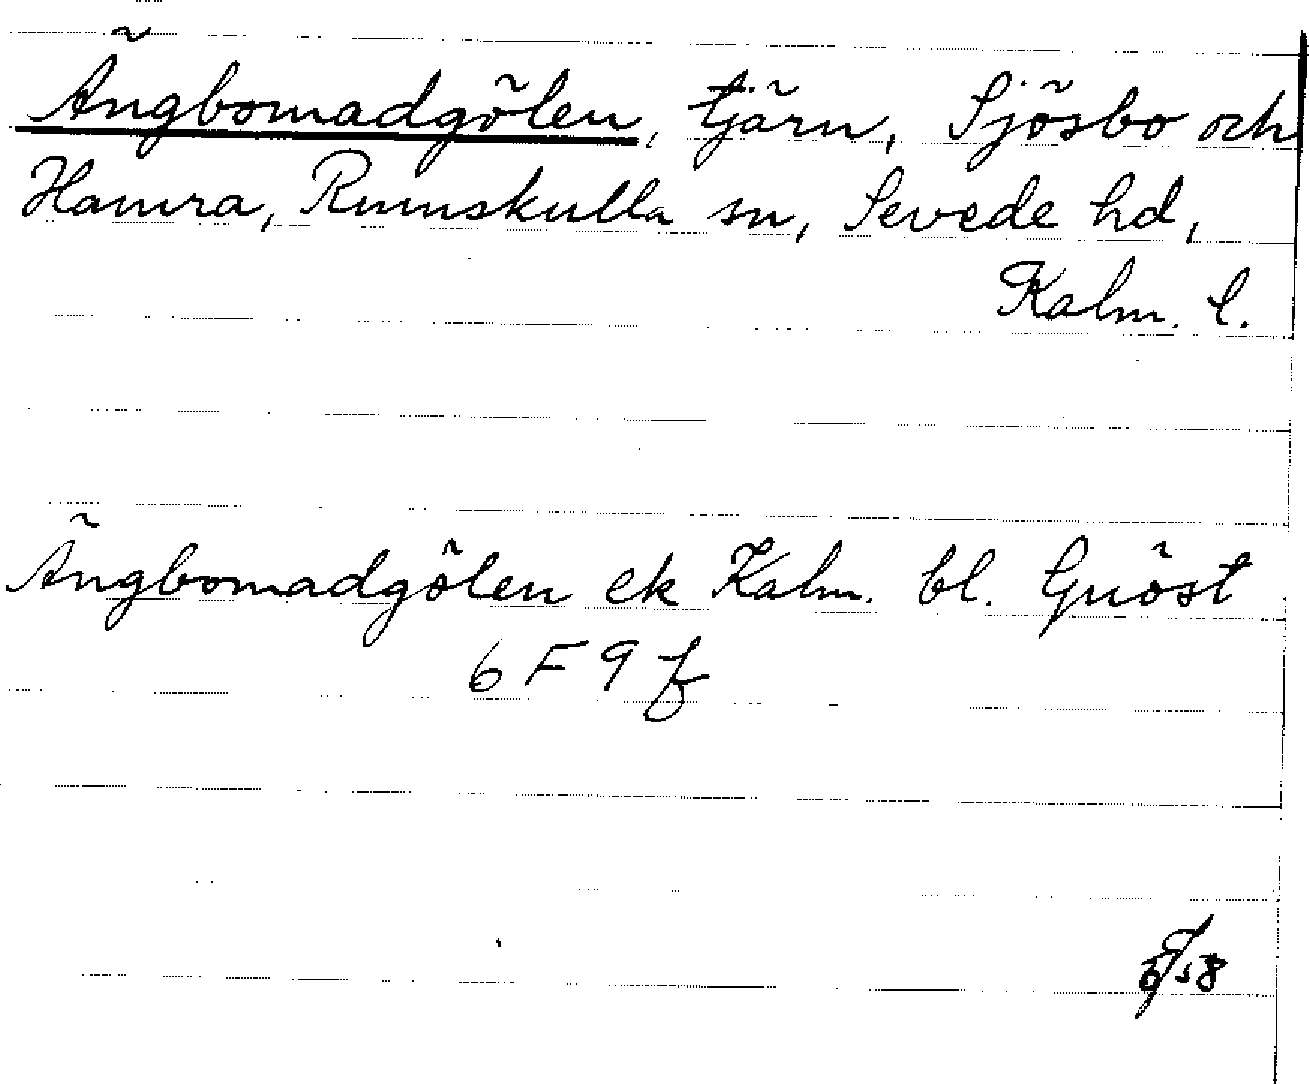 Ängbomadgölen, tjärn, Sjösbo och
Hamra, Rumskulla sn, Sevede hd,
Kalm. l.
Ängbomadgölen ek Kalm. bl. Gnöst
6 F 9 f